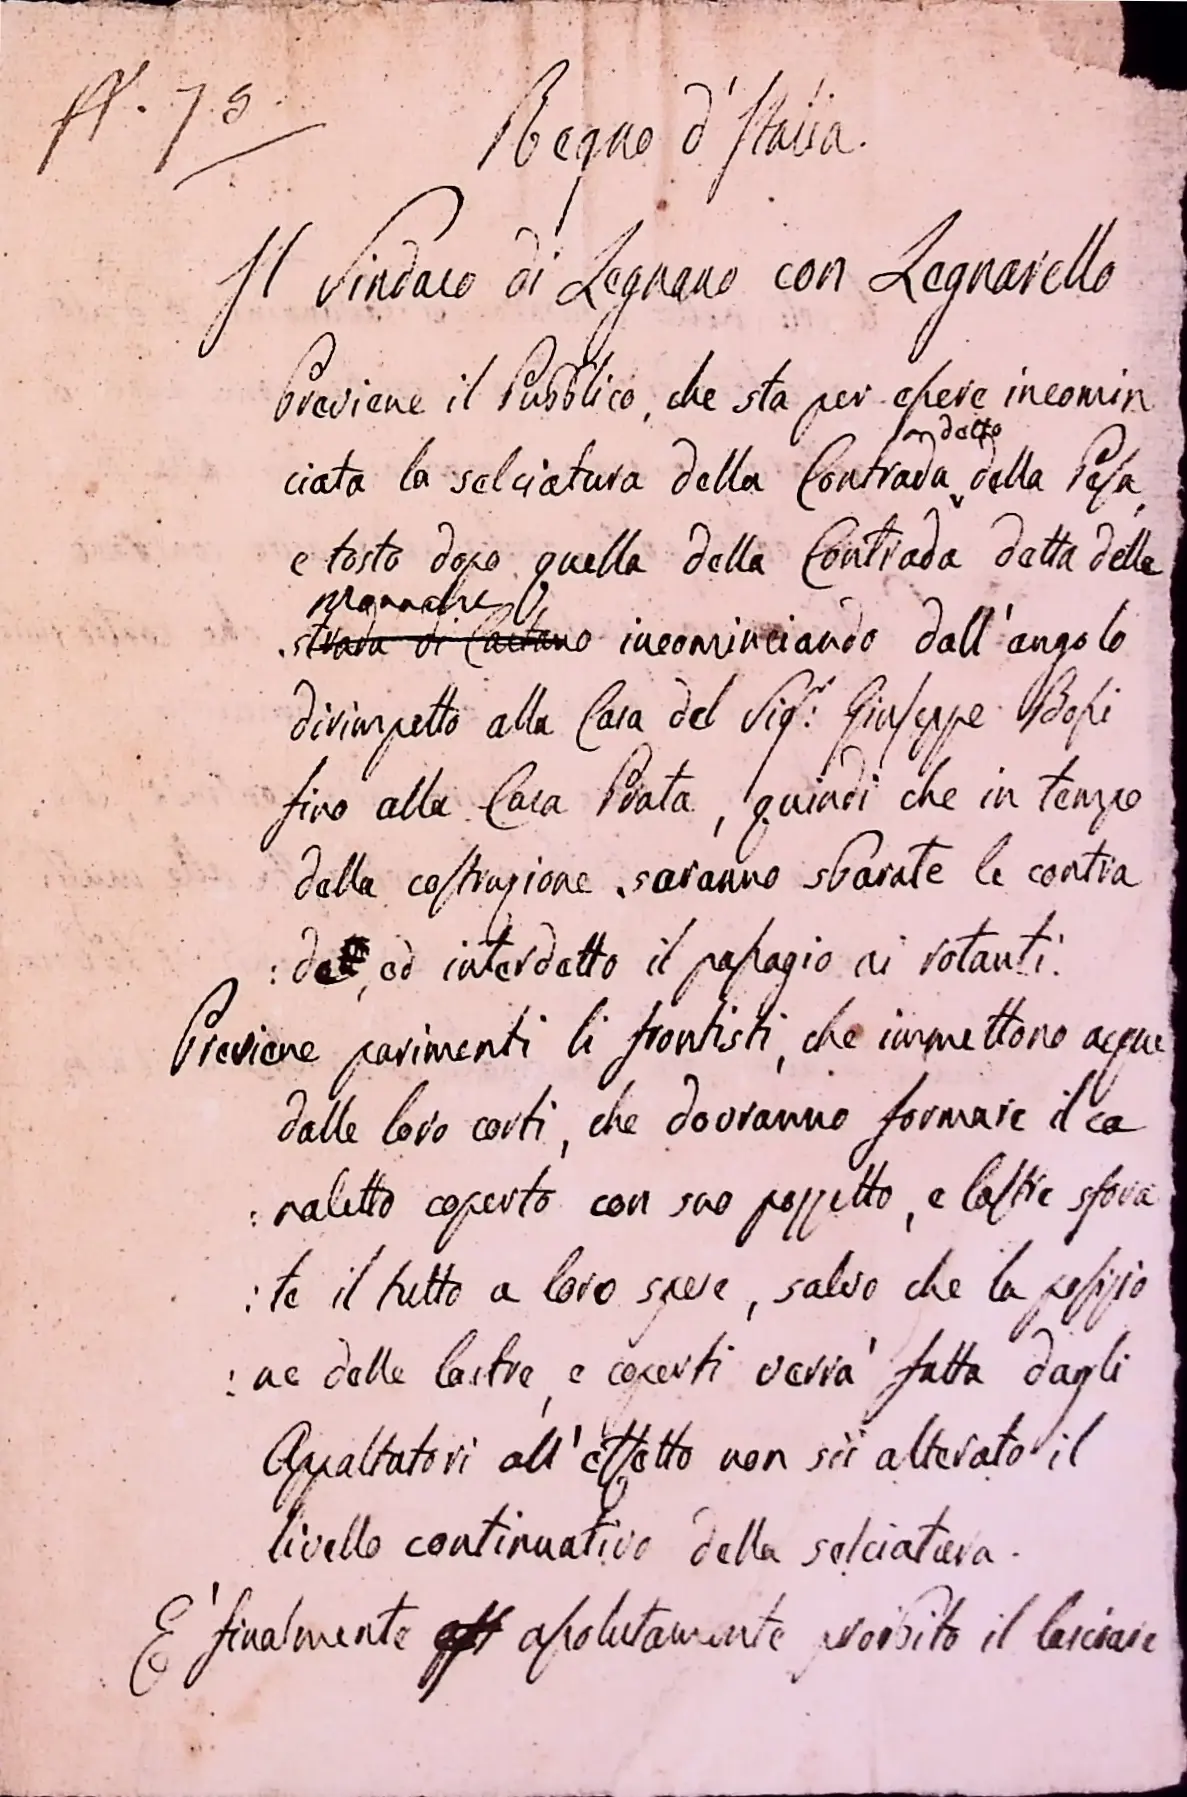 N. 75
Regno d'Italia.
Il Sindaco di Legnano con Legnarello
Previene il Pubblico, che sta per essere incomin
ciata la selciatura della Contrada detta della Pesa,
e tosto dopo quella della Contrada detta delle
Monache
strada di Gaetano incominciando dall'angolo
dirimpetto alla Casa del Sig.r Giuseppe Bossi
fino alla Casa Prata, quindi che in tempo
della costruzione saranno sbarate le contra
:de, ed interdetto il passagio ai rotanti.
Previene parimenti li frontisti, che immettono acque
dalle loro corti, che dovranno formare il ca
:naletto coperto con suo pozzetto, e lastre sfora
:te il tutto a loro spese, salvo che la posizio
:ne delle lastre, e coperti verra' fatta dagli
Appaltatori all'effetto non sii alterato il
livello continuativo della selciatura.
E' finalmente assolutamente proibito il lasciare